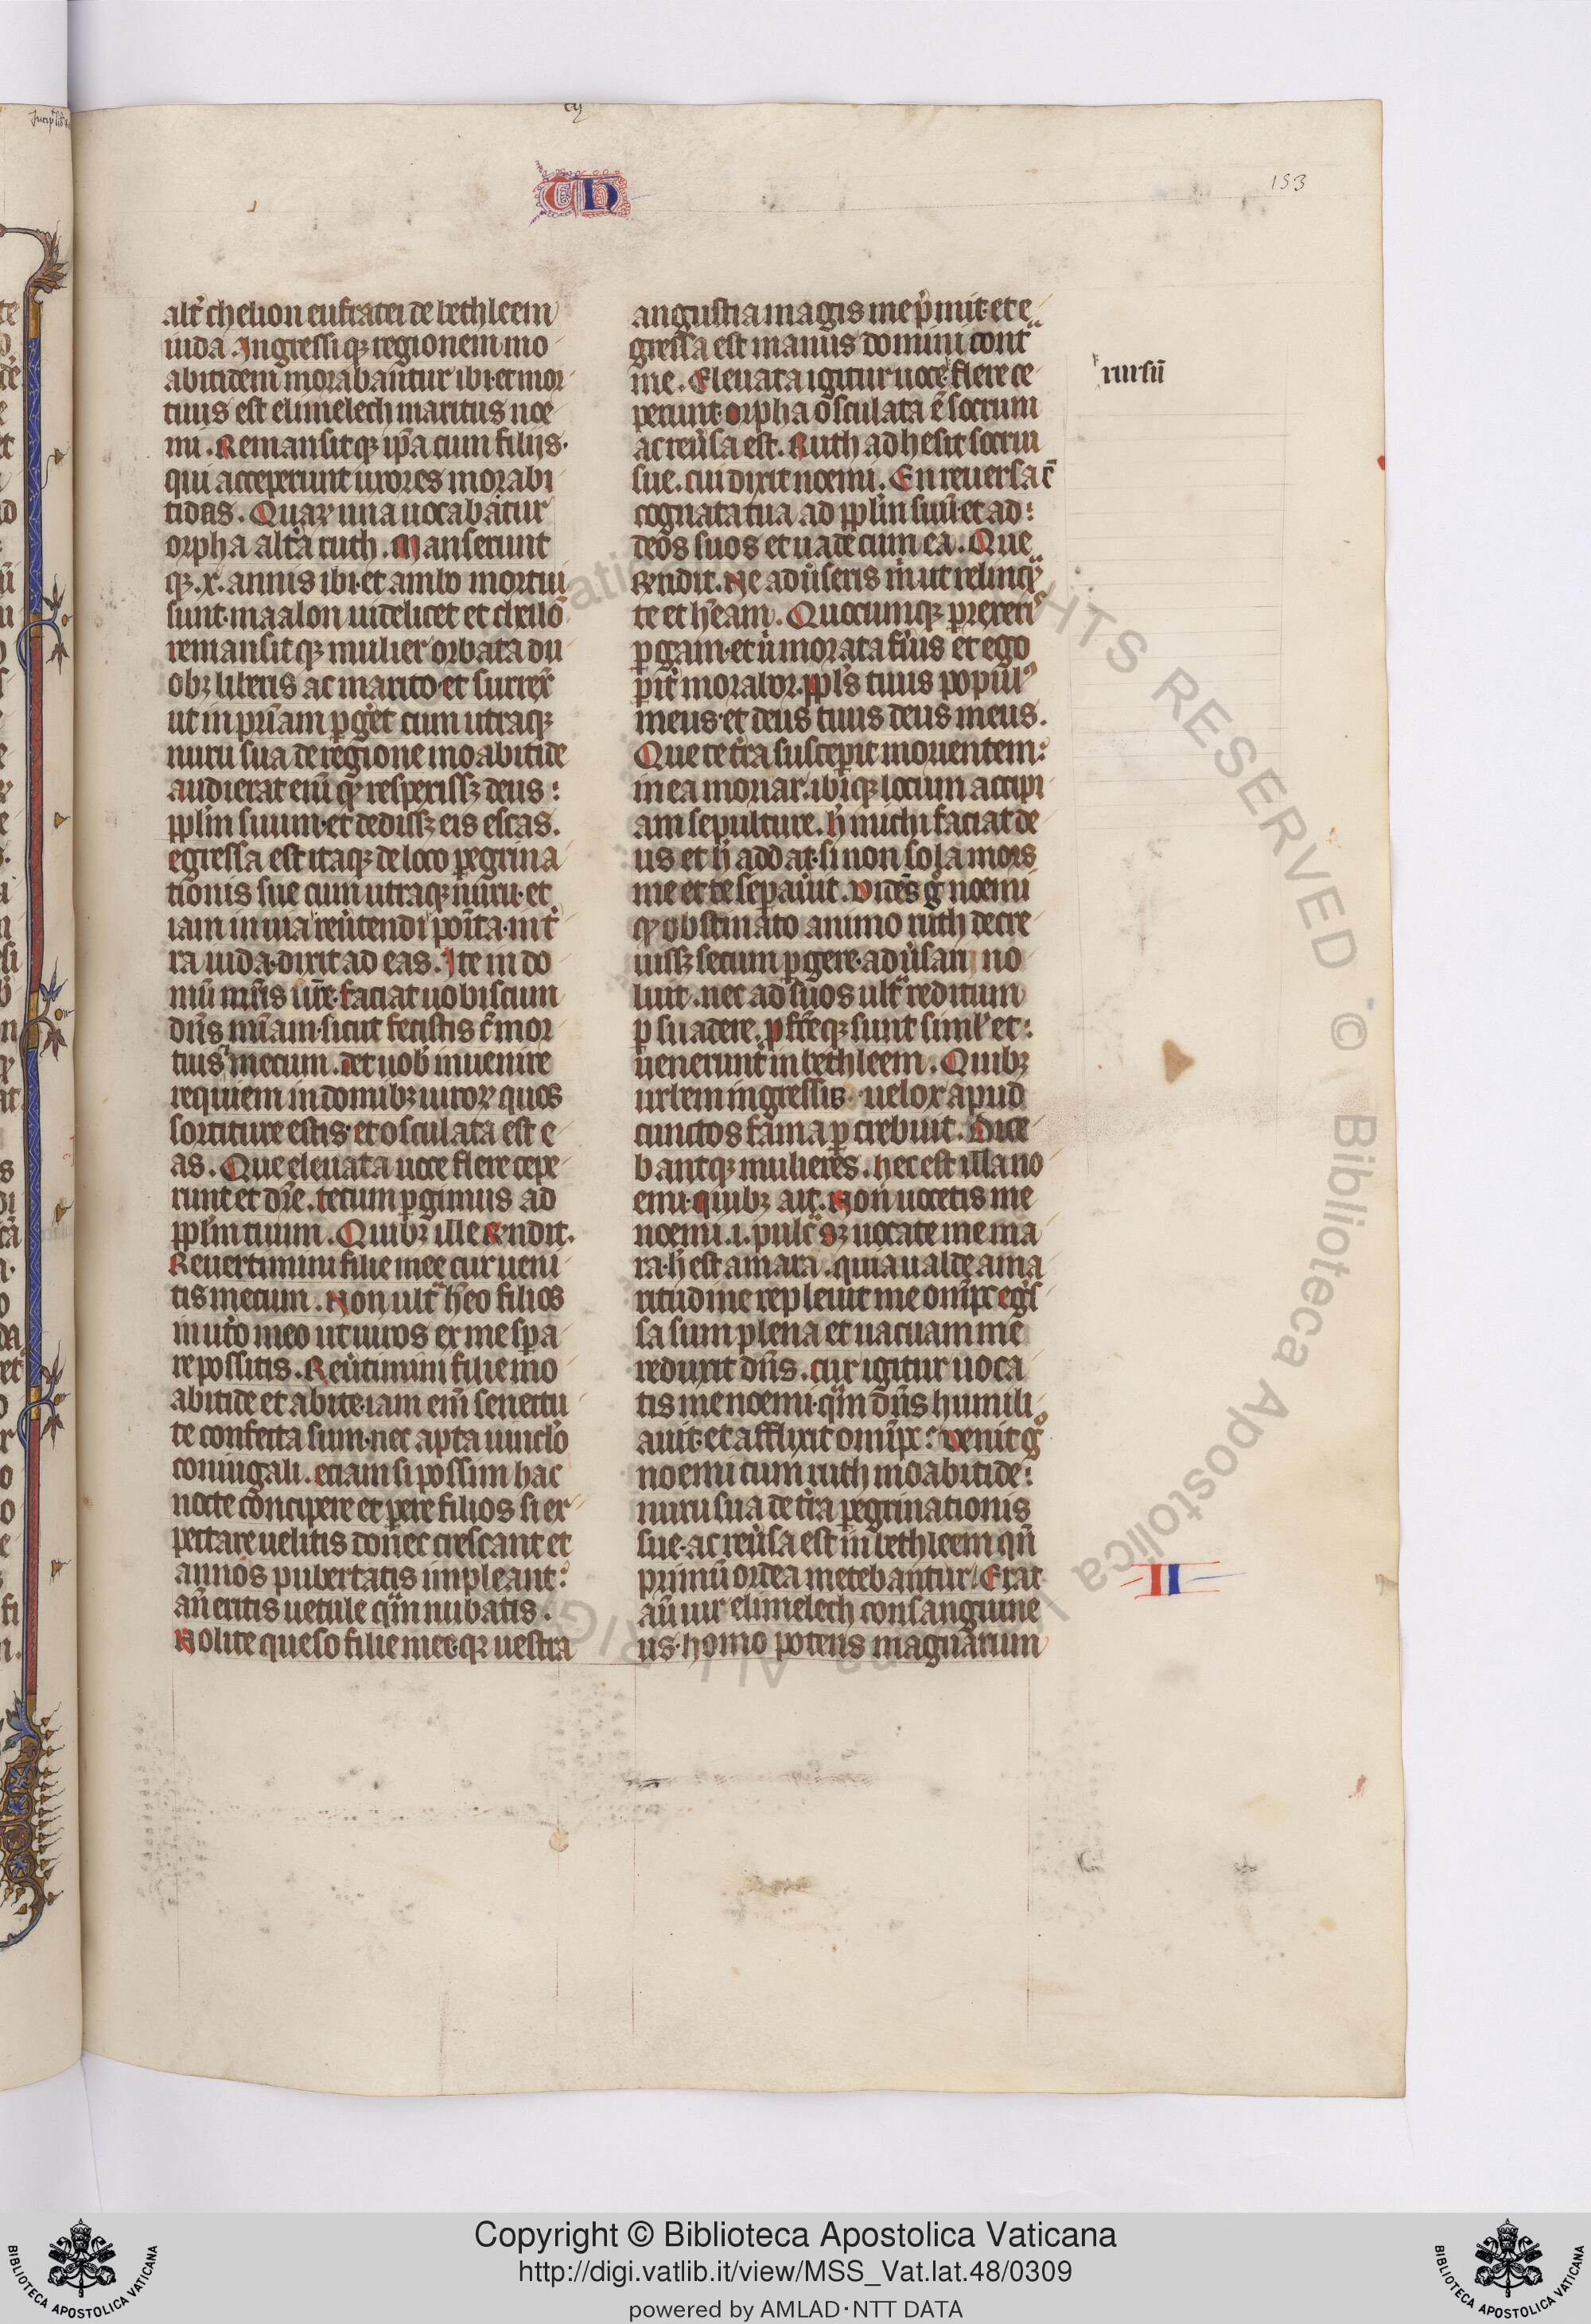 cij
TH
153
alt̉ chelion eufratei de bethleem
iuda. Ingressiqꝫ regionem mo
abitidem morabantur ibi. et mor
tuus est elimelech maritus noe
mi. Remansitqꝫ ip̄a cum filijs.
qui acceperunt uxores moabi
tidas. Quaꝝ una uocabatur
orpha alt̉a ruth. Manserunt
qꝫ .x. annis ibi. et ambo mortui
sunt. maalon uidelicet et chelio̅
remansitqꝫ mulier orbata du
obꝫ liberis ac marito. et surrex̉
ut in pr̄iam ꝑg̉et cum utraqꝫ
nuru sua de regione moabitide
audierat eni̅ qꝙ respexissꝫ deus:
pplm̄ suum. et dedissꝫ eis escas.
egressa est itaqꝫ de loco ꝑegrina
tionis sue cum utraqꝫ nuru. et
iam in uia reủtendi po̅ita. in t̉
ra iuda. dixit ad eas. Ite in do
mu̅ mr̄is ur̄e. faciat uobiscum
dn̄s mi̅am. sicut fecistis c̄ mor
tuis et mecum. det uob̄ inuenire
requiem in domibꝫ uiroꝝ quos
sortiture estis. et osculata est e
as. Que eleuata uoce flere cepe
runt et dr̄e. tecum ꝑgimus ad
pplm̄ tuum. Quibꝫ ille rn̄dit.
Reuertimini filie mee cur ueni
tis mecum. Non ult̉ h̄eo filios
in ut̉o meo ut uiros ex me sꝑa
re possitis. Reủtimini filie mo
abitide et abite. iam eni̅ senectu
te confecta sum. nec apta uinclo̅
coniugali. etiam si possim hac
nocte concipere et ꝑere filios si ex
pectare uelitis donec crescant et
annos pubertatis impleant:
an̄ eritis uetule qͣm nubatis.
Nolite queso filie mee. qꝛ uestra
angustia magis me p̉mit. et e
gressa est manus domini cont̉
me. Eleuata igitur uoce. flere ce
perunt. orpha osculata e̅ socrum
ac reủsa est. Ruth adhesit socrui
sue. cui dixit noemi. En reuersa e̅
cognata tua ad pplm̄ suu̅. et ad:
deos suos et uade cum ea. Que
rn̄dit. Ne adủseris m̉ ut relinqͣ
te et h̄eam. Quocumqꝫ ꝑrexeris
ꝑgam. et ủ morata fủis et ego
ꝑit̉ morabor. ppl̄s tuus popul̉
meus. et deus tuus deus meus.
Que te t̉ra suscep̉it morientem:
in ea moriar. ibiqꝫ locum accipi
am sepulture. h̉ michi faciat de
us et h̉ addat. si non sola mors
me et te sepaủit. Vide̅s g̉ noemi
qꝙ obstinato animo ruth decre
uissꝫ secum ꝑgere. adủsari no
luit. nec ad suos ult̉ reditum
ꝑsuadere. ꝓfc̄eqꝫ sunt siml̉ et:
uenerunt in bethleem. Quibꝫ
urbem ingressis. uelox apud
cunctos fama ꝑcrebuit. Dice
bantqꝫ mulieres. hec est illa no
emi. Quibꝫ ait. Non uocetis me
noemi .i. pulc̉. sꝫ uocate me ma
ra. h̉ est amara. quia ualde ama
ritudine repleuit me omi̅pc. eg̉s
sa sum plena et uacuam me
reduxit dn̄s. cur igitur uoca
tis me noemi. qͣm dn̄s humili
auit. et afflixit omi̅pc: Venit g̉
noemi cum ruth moabitide:
nuru sua de t̉ra ꝑegrinationis
sue. ac reủsa est in bethleem qn̄
primu̅ ordea metebantur. Erat
au̅ uir elimelech consanguine
us. homo potens magnarum
rursu̅
II
Copyright © Biblioteca Apostolica Vaticana
http://digi.vatlib.it/view/MSS_Vat.lat.48/0309
powered by AMLAD·NTT DATA
BIBLIOTECA APOSTOLICA VATICANA
BIBLIOTECA APOSTOLICA VATICANA